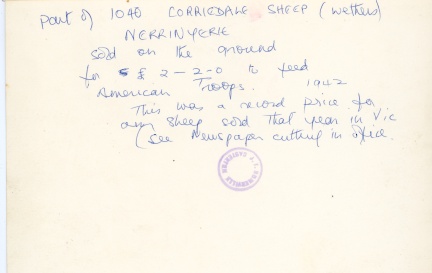 part of 1040 CORRIEDALE SHEEP (wethers)
NERRINYERIE
sold on the ground
for £ 2-2-0 to feed
American Troops. 1942
This was a record price for
any sheep sold that year in Vic
(see Newspaper cutting in office.